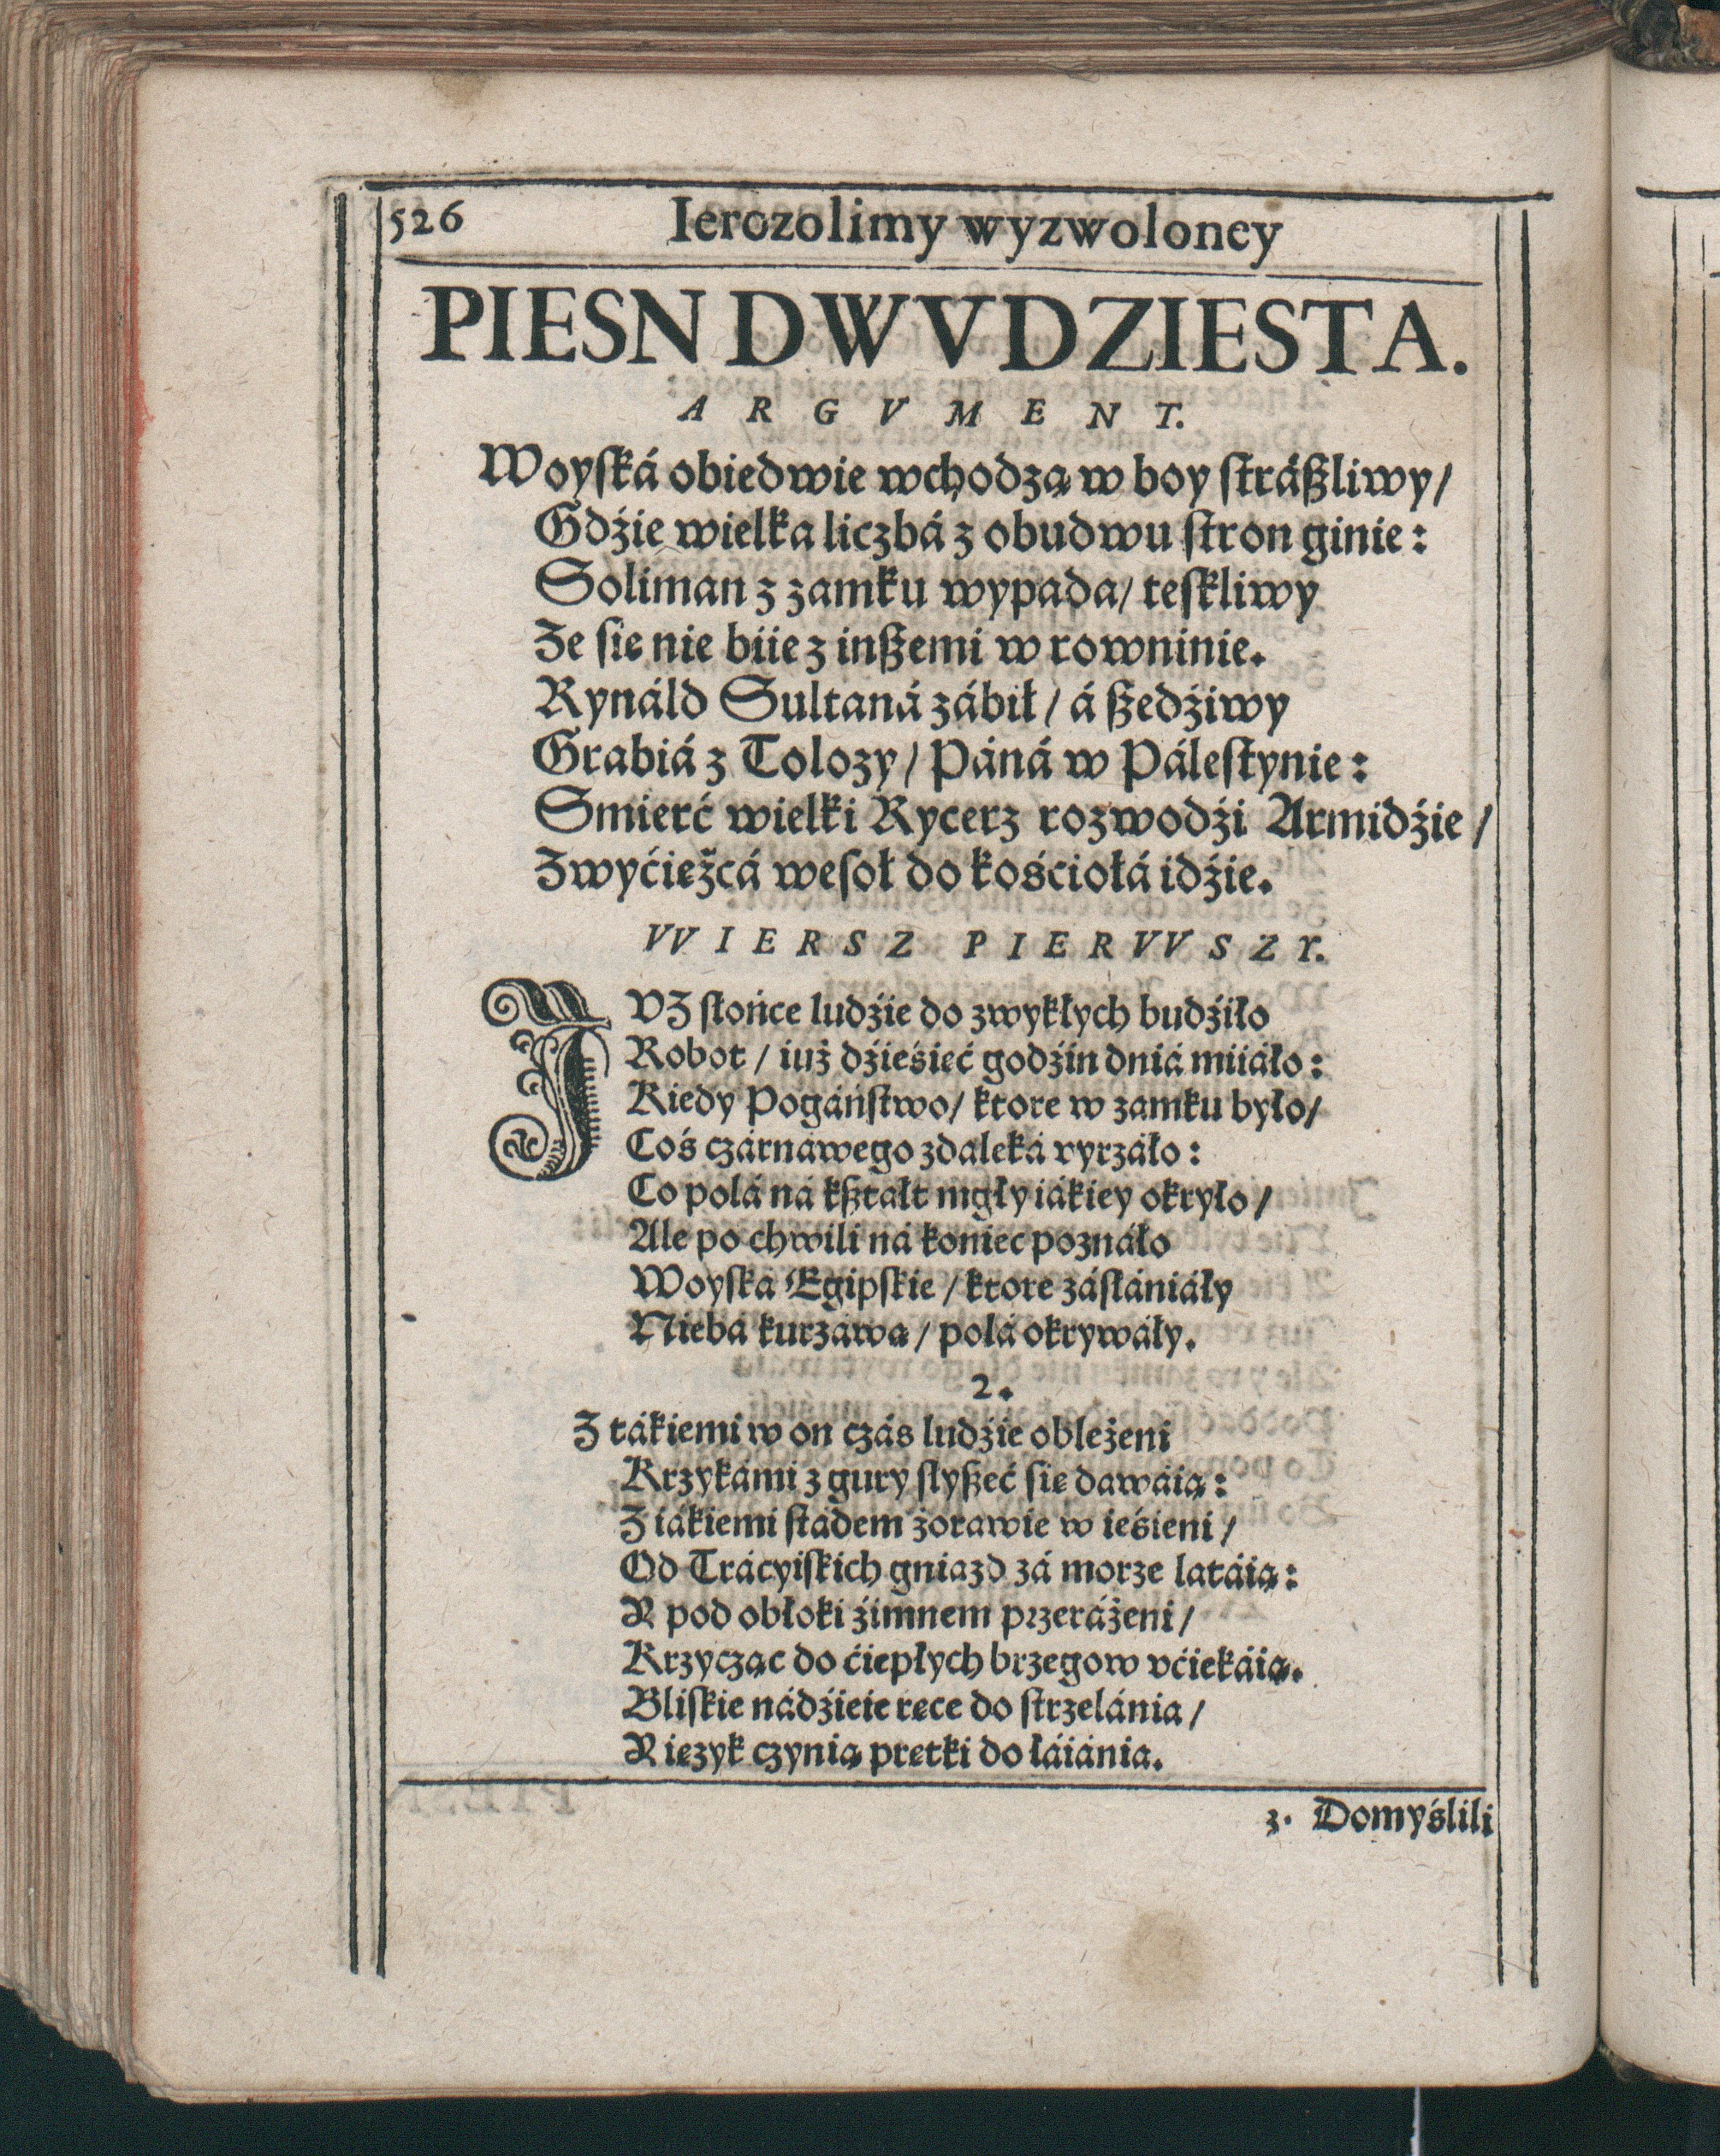 526 Ierozolimy wyzwoloney
PIESN DWVDZIESTA.
ARGVMENT.
Woyſká obiedwie wchodzą w boy ſtráßliwy/
Gdźie wielka liczbá z obudwu ſtron ginie:
Soliman z zamku wypada/ teſkliwy
Ze ſie nie biie z inßemi w rowninie.
Rynáld Sultaná zábił/ á ßedźiwy
Grabiá z Tolozy/ Páná w Páleſtynie:
Smierć wielki Rycerz rozwodźi Armidźie/
Zwyćiężcá weſoł do kośćiołá idźie.
VVIERSZ PIERVVSZY.
IVZ ſłońce ludźie do zwykłych budźiło
Robot/ iuż dźieśięć godźin dniá miiáło:
Kiedy Pogáńſtwo/ ktore w zamku było/
Coś czárnáwego zdaleká vyrzáło:
Co polá ná kßtałt mgły iákiey okryło/
Ale po chwili ná koniec poznáło
Woyſka Egipſkie/ ktore záſłániáły
Niebá kurzawą/ polá okrywáły.
2.
Z tákiemi w on czás ludźie oblężeni
Krzykámi z gury ſłyßeć ſię dawáią:
Z iákiemi ſtádem żorawie w ieśieni/
Od Trácyiſkich gniazd zá morze latáią:
Y pod obłoki źimnem przeráżeni/
Krzycząc do ćiepłych brzegow vćiekáią.
Bliſkie nádźieie ręce do ſtrzelánia/
Y ięzyk czynią prętki do łáiánia.
3. Domyślili